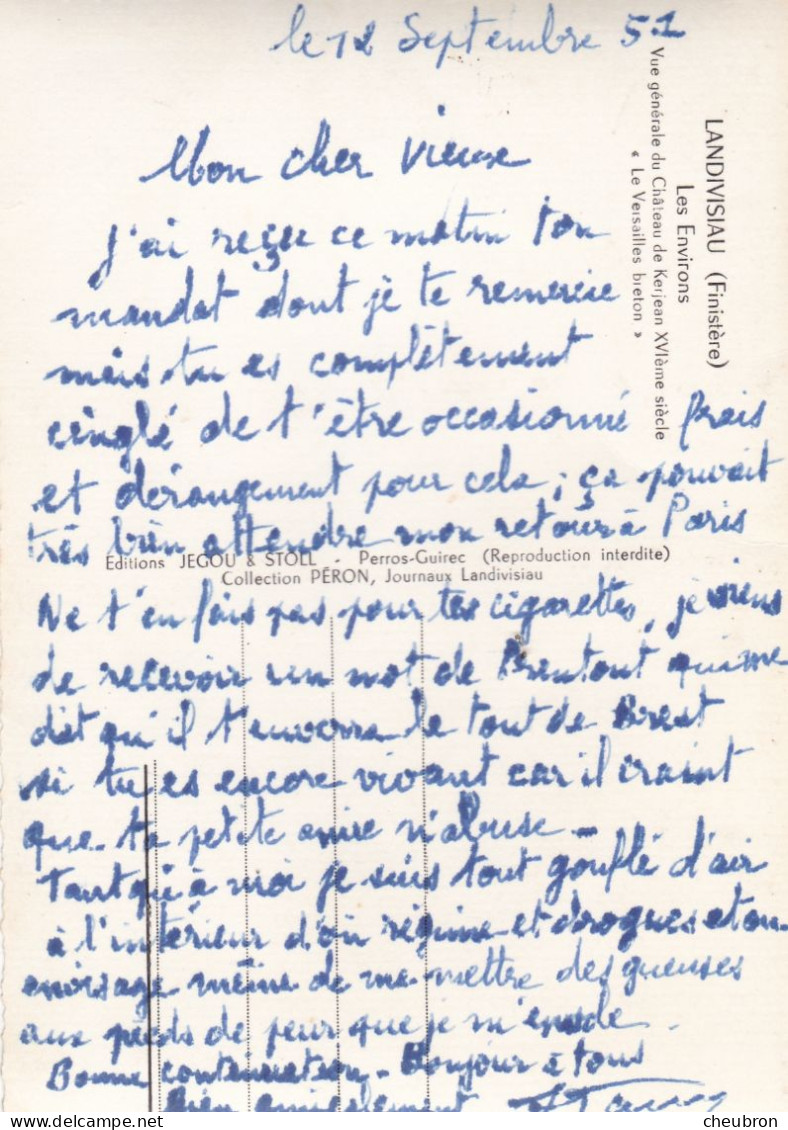 le 12 Septembre 51
LANDIVISIAU (Finistère)
Les Environs
Vue générale du Château de Kerjean XVIème siècle
« Le Versailles breton »
Mon cher
J'ai reçu ce matin ton
mandat dont je te remercie
mais tu es complètement
cinglé de t'être occasionné frais
et dérangement pour cela, ça pouvait
très bien attendre mon retour à Paris
Editions JEGOU & STOLL - Perros-Guirec (Reproduction interdite)
Collection PÉRON, Journaux Landivisiau
Ne t'en fais pas pour tes cigarettes, je viens
de recevoir un mot de qui me
dit qu'il t'enverra le tout de Brest
si tu es encore vivant car il craint
que ta petite amie n'abuse -
Tant qu'à moi je suis tout gonflé d'air
à l'intérieur d'où régime et drogues et on
envisage même de me mettre des gueuses
aux pieds de peur que je m'envole.
Bonne continuation - Bonjour à tous
Bien amicalement
CPA - cheubron
cheubron.com